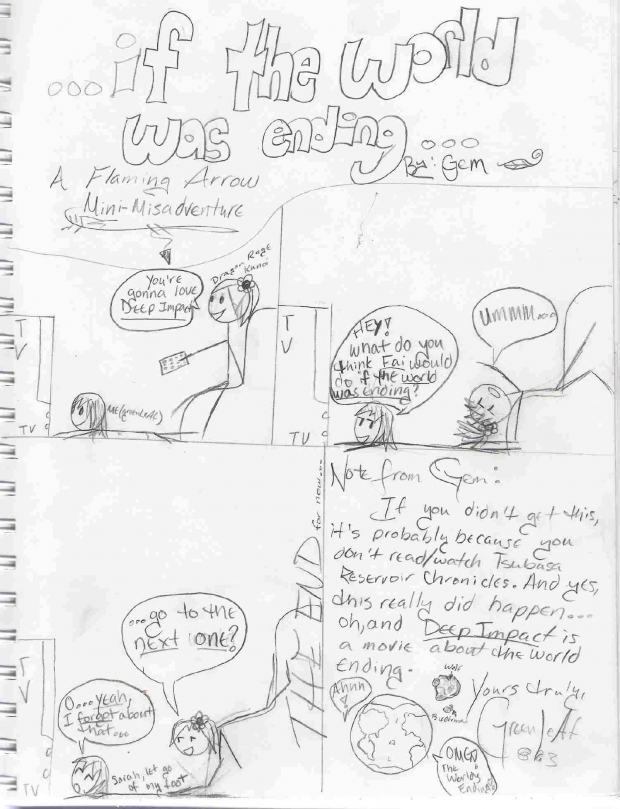 ...if the world
was ending...
By: Gem
A Flaming Arrow
Mini-Misadventure
You're
gonna love
DEEP IMPACT
Dragon Rage
Kanoi
T
V
ME (greenleaf)
TV
HEY!
what do you
think Fai would
do if the world
was ending?
ummm...
T
V
TV
...go to the
next one?
O... yeah,
I forgot about
that...
Sarah, let go
of my foot
T
V
TV
THE END for now...
Note from Gem:
If you didn't get this,
it's probably because you
don't read/watch Tsubasa
Reservoir Chronicles. And yes,
this really did happen...
oh, and DEEP IMPACT is
a movie about the world
Ending.
Yours truly,
Greenleaf
Ahhh
OMG!
The
World's
Ending!